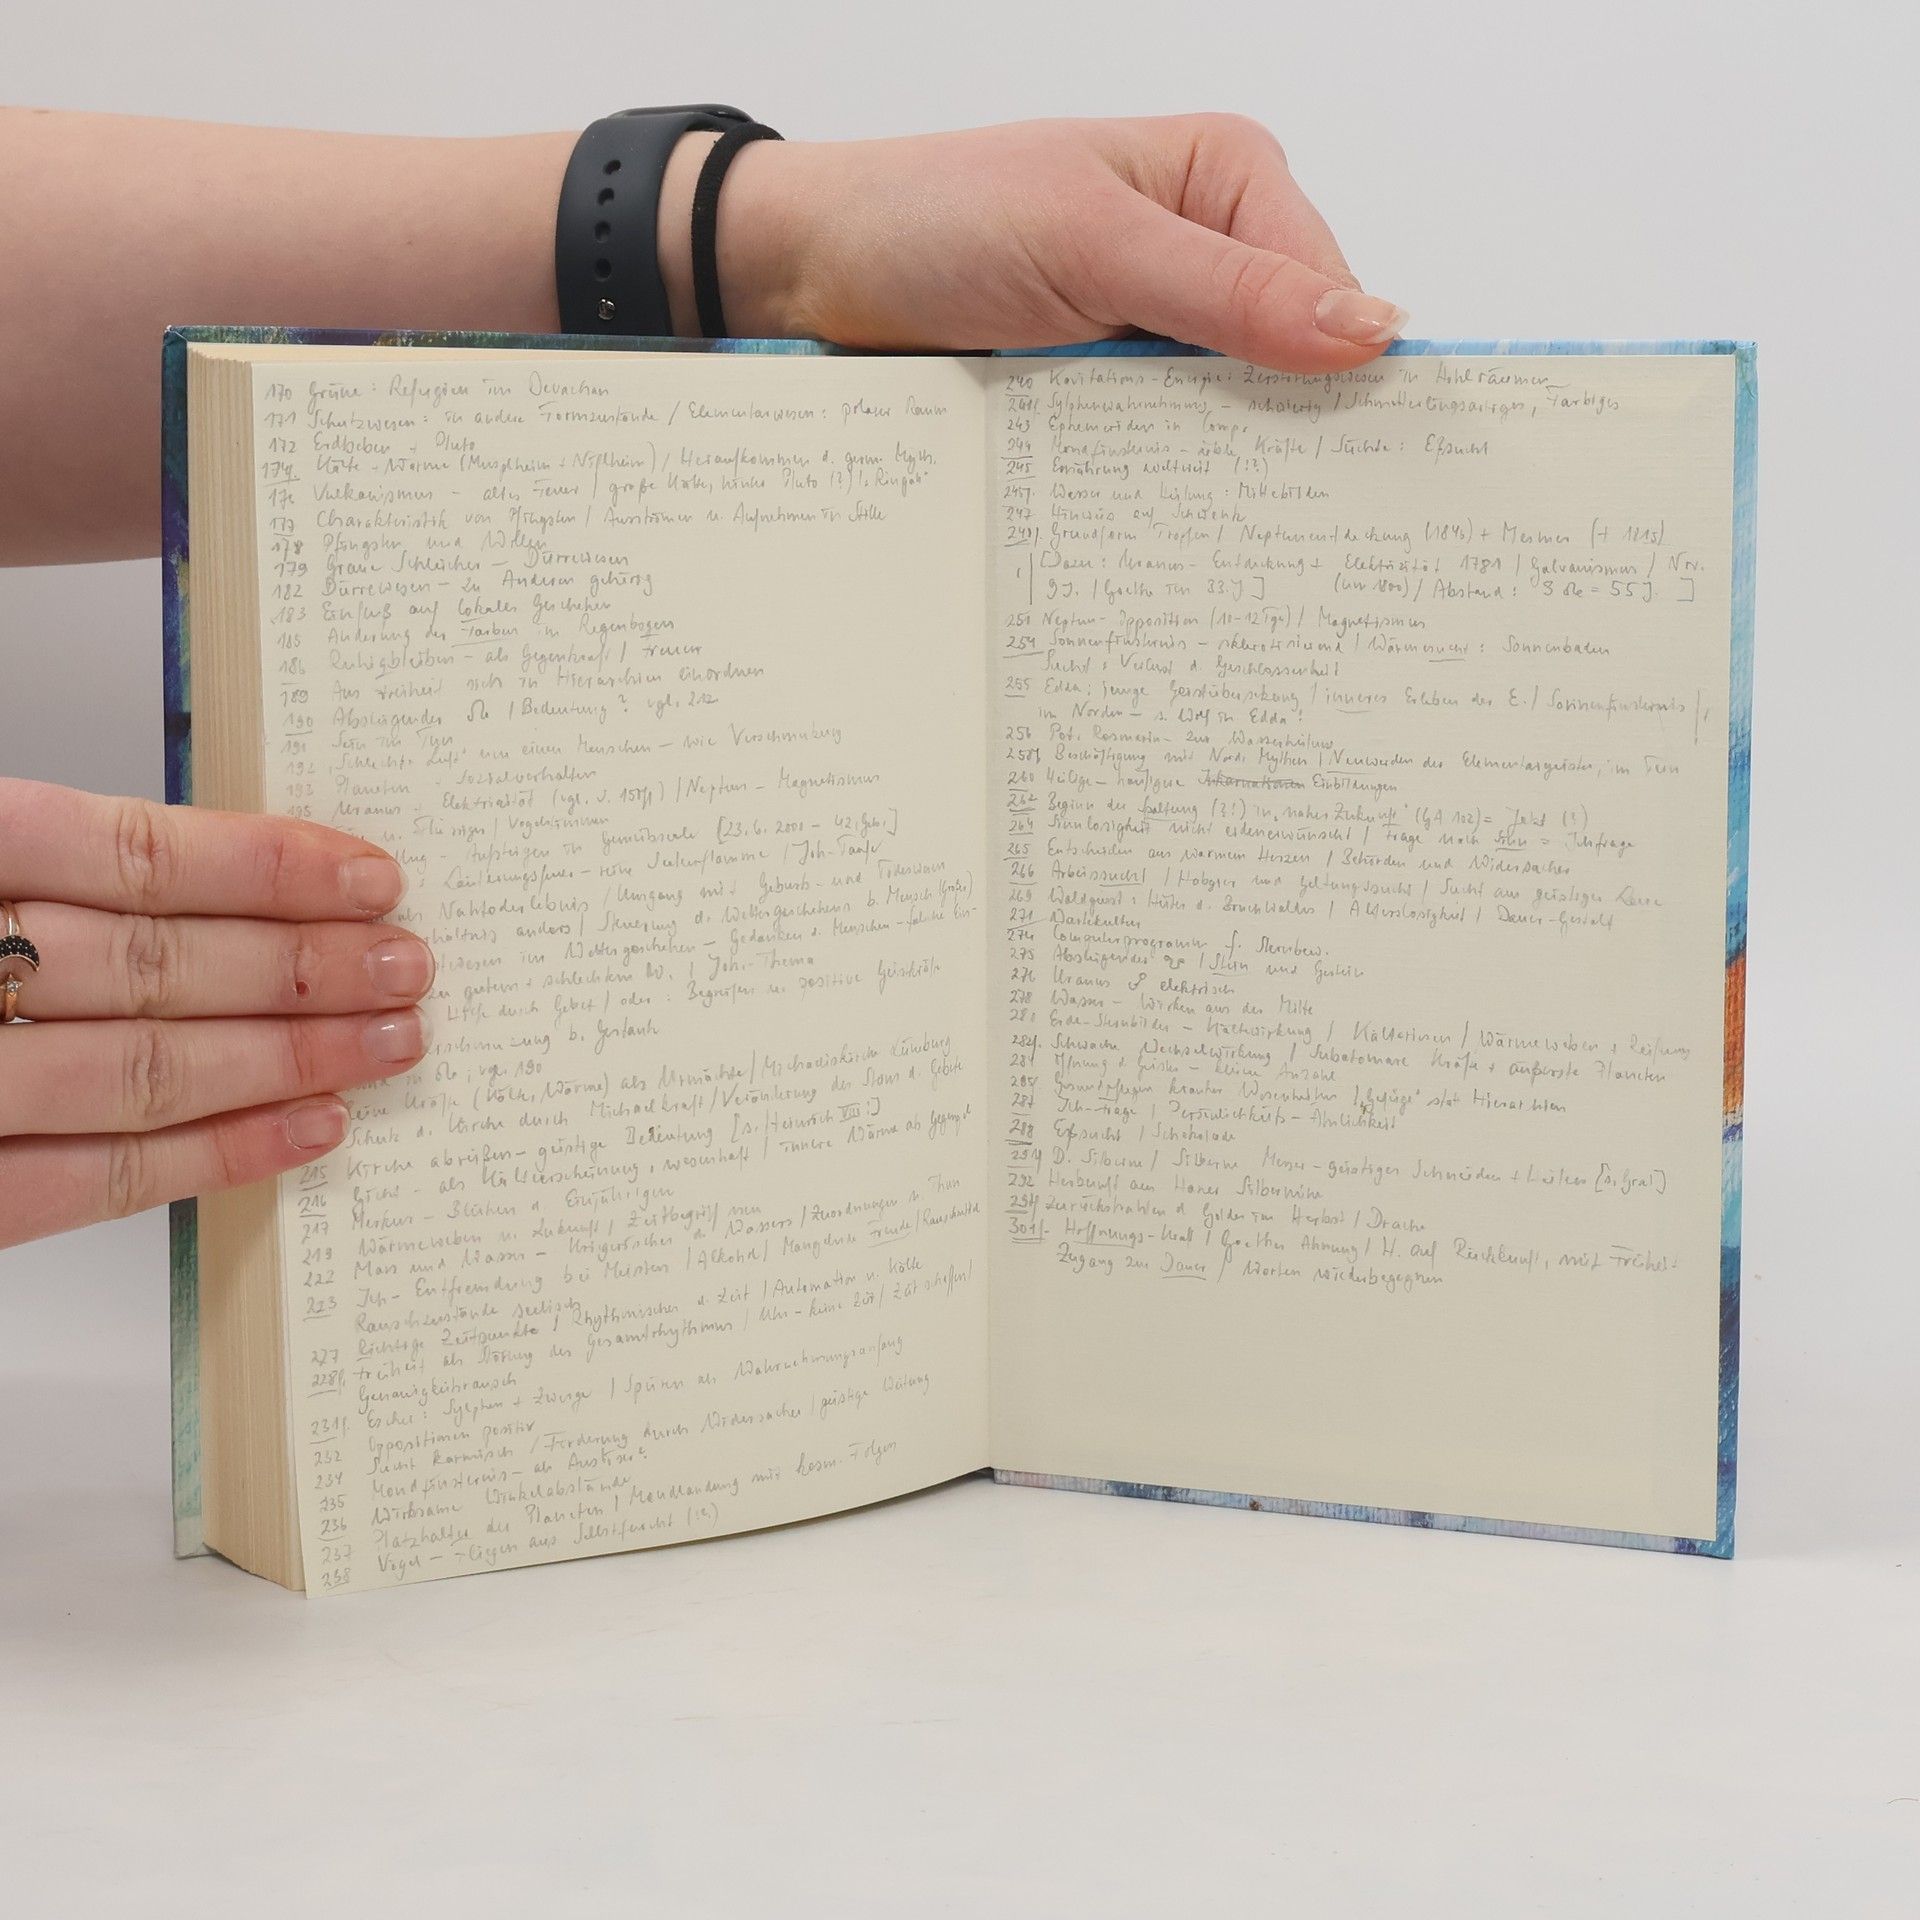 170 Grüne: Refugien im Devachan
171 Schutzwesen: in andere Formzustände / Elementarwesen: polarer Raum
172 Erdbeben + Pluto
174f. Kälte + Wärme (Muspelheim + Niflheim) / Heraufkommen d. germ. Myth.
Vulkanismus - altes Feuer / große Kälte, hinter Pluto (?)
177 Charakteristik von Pfingsten / Ausströmen u. Aufnehmen in Stille
178 Pfingsten und Willen
179 Graue Schleicher - Dürrewesen
182 Dürrewesen - zu Anderen gehörig
183 Einfluß auf lokales Geschehen
185 Änderung der Farben im Regenbogen
186 Ruhigbleiben - als Gegenkraft / Feuer
189 Aus Freiheit sich in Hierarchien einordnen
190 Absteigender ☊ / Bedeutung? vgl. 212
191 Sein im Tun
192 "Schlechte Luft" um einen Menschen - wie Verschmutzung
193 Planeten + Sozialverhalten
195 Uranus + Elektrizität (vgl. S. 158f) / Neptun - Magnetismus
u. Flüssiges / Vogelstimmen
- Aufsteigen in Gemütsseele [23.6.2000 - 42. Geb.]
: Läuterungsfeuer - reine Seelenflamme / Joh-Taufe
als Nahtoderlebnis / Umgang mit Geburts- und Todeswesen
anders / Steuerung d. Wettergeschehens b. Mensch (Größe)
im Wettergeschehen - Gedanken d. Menschen - falsche Ein-
zu gutem + schlechtem W. / Joh.-Thema
Hilfe durch Gebet / oder: Begreifen der positive Geistkräfte
b. Gestank
in ☊; vgl. 190
Kräfte (Kälte, Wärme) als Urmächte / Michaeliskirche Lüneburg
Schutz d. Kirche durch Michaelkraft / Veränderung des Stoms d. Gebete
215 Kirche abreißen - geistige Bedeutung [s. Heinrich VIII!]
216 Gicht - als Kälteerscheinung, wesenhaft / innere Wärme als Gegenpol
217 Merkur - Blühen d. Einjährigen
219 Wärmeweben u. Zukunft / Zeitbegriff neu
222 Mars und Wasser - Kriegerisches d. Wassers / Zuordnungen u. Thun
223 Ich-Entfremdung bei Meisten / Alkohol / Mangelnde Freude / Rauschmittel
Rauschzustände seelisch
227 Richtige Zeitpunkte / Rhythmisches d. Zeit / Automation u. Kälte
228f. Freiheit als Störung des Gesamtrhythmus / Uhr - keine Zeit / Zeit schaffen!
Genauigkeitsrausch
231f. Escher: Sylphen + Zwerge / Spüren als Wahrnehmungsanfang
232 Oppositionen positiv
234 Sucht karmisch / Forderung durch Widersacher / geistige Weitung
235 Mondfinsternis - als Auslöser?
236 Wirksame Winkelabstände
237 Platzhalter der Planeten / Mondlandung mit kosm. Folgen
238 Vögel - Fliegen aus Selbstfurcht (!?)
240 Kavitations-Energie: Zerstörungswesen in Hohlräumen
241f Sylphenwahrnehmung - schwierig / Schmetterlingsartiges, Farbiges
243 Ephemeriden im Comp.
244 Mondfinsternis - üble Kräfte / Süchte: Eßsucht
245 Ernährung weltweit (!?)
245f. Wasser und Heilung: Mittebilden
247 Hinweis auf Schwenk
248f. Grundform Tropfen / Neptunentdeckung (1846) + Mesmer (+ 1815)
[Dazu: Uranus-Entdeckung + Elektrizität 1781 / Galvanismus / Nov.
9J. / Goethe im 33.J] (um 1800) / Abstand: 3 ☊ = 55J. ]
251 Neptun-Opposition (10-12 Tge) / Magnetismus
254 Sonnenfinsternis - sklerotisierend / Wärmesucht: Sonnenbaden
Sucht: Verlust d. Geschlossenheit
255 Edda: junge Geistübersetzung / inneres Erleben der E. / Sonnenfinsternis
im Norden - s. Wolf in Edda!
256 Pot. Rosmarin - zur Wasserheilung
258f Beschäftigung mit Nord. Mythen / Neuwerden der Elementargeister, im Tun
260 Heilige - häufigere Inkarnationen Einbildungen
262 Beginn der Spaltung (?!) in "naher Zukunft" (GA 102) = Jetzt (?)
264 Sinnlosigkeit nicht erdenerwünscht / Frage nach Sinn = Ichfrage
265 Entscheiden aus warmem Herzen / Behörden und Widersacher
266 Arbeitssucht / Habgier und Geltungssucht / Sucht aus geistiger Leere
269 Waldgeist: Hüter d. Bruchwaldes / Alterslosigkeit / Dauer-Gestalt
271
274 Computerprogramm f. Sternbew.
275 Absteigender ☊ / Stern und Gestein
276 Uranus ♂ elektrisch
278 Wasser - Wirken aus der Mitte
281 Erde-Sternbilder - Kältewirkung / Kälteriesen / Wärmeweben + Reifung
282f. Schwache Wechselwirkung / Subatomare Kräfte + äußerste Planeten
284 Ahnung d. Geistes - kleine Anzahl
285f Gesundpflegen kranker Wesenhaften / "Gefüge" statt Hierarchien
287 Ich-Frage / Persönlichkeits-Ähnlichkeit
288 Eßsucht / Schokolade
291f D. Silberne / Silberne Messer - geistiges Schneiden + Heilen [s. Gral]
292 Herkunft aus Harzer Silbermine
Zurückstrahlen d. Goldes im Herbst / Drache
301f. Hoffnungs-Kraft / Goethes Ahnung / H. auf Rückkunft, mit Freiheit
Zugang zur Dauer / Worten wiederbegegnen